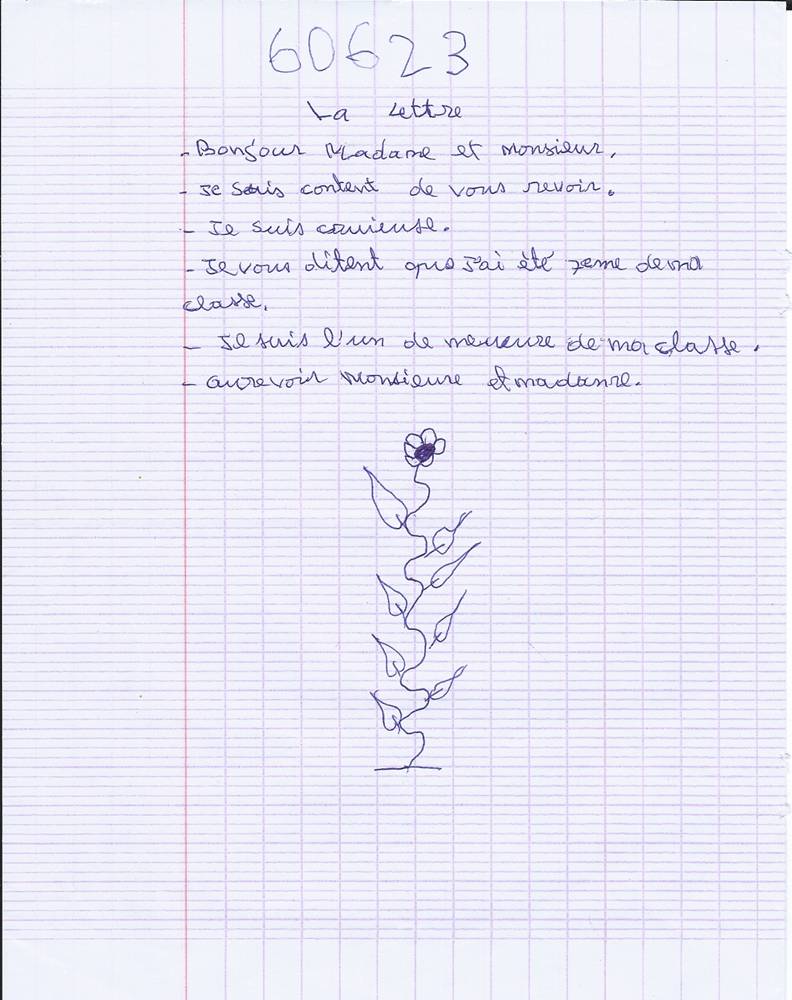 60623
La Lettre
- Bonjour Madame et monsieur.
- Je suis content de vous revoir.
- Je suis courieuse.
- Je vous ditent que J'ai été 7eme de ma
classe.
- Je suis l'un de meueure de ma classe.
- aurevoir Monsieure et madame.